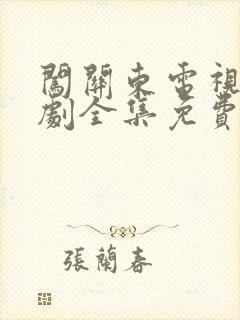 闖關東電視
劇全集免費
張蘭春